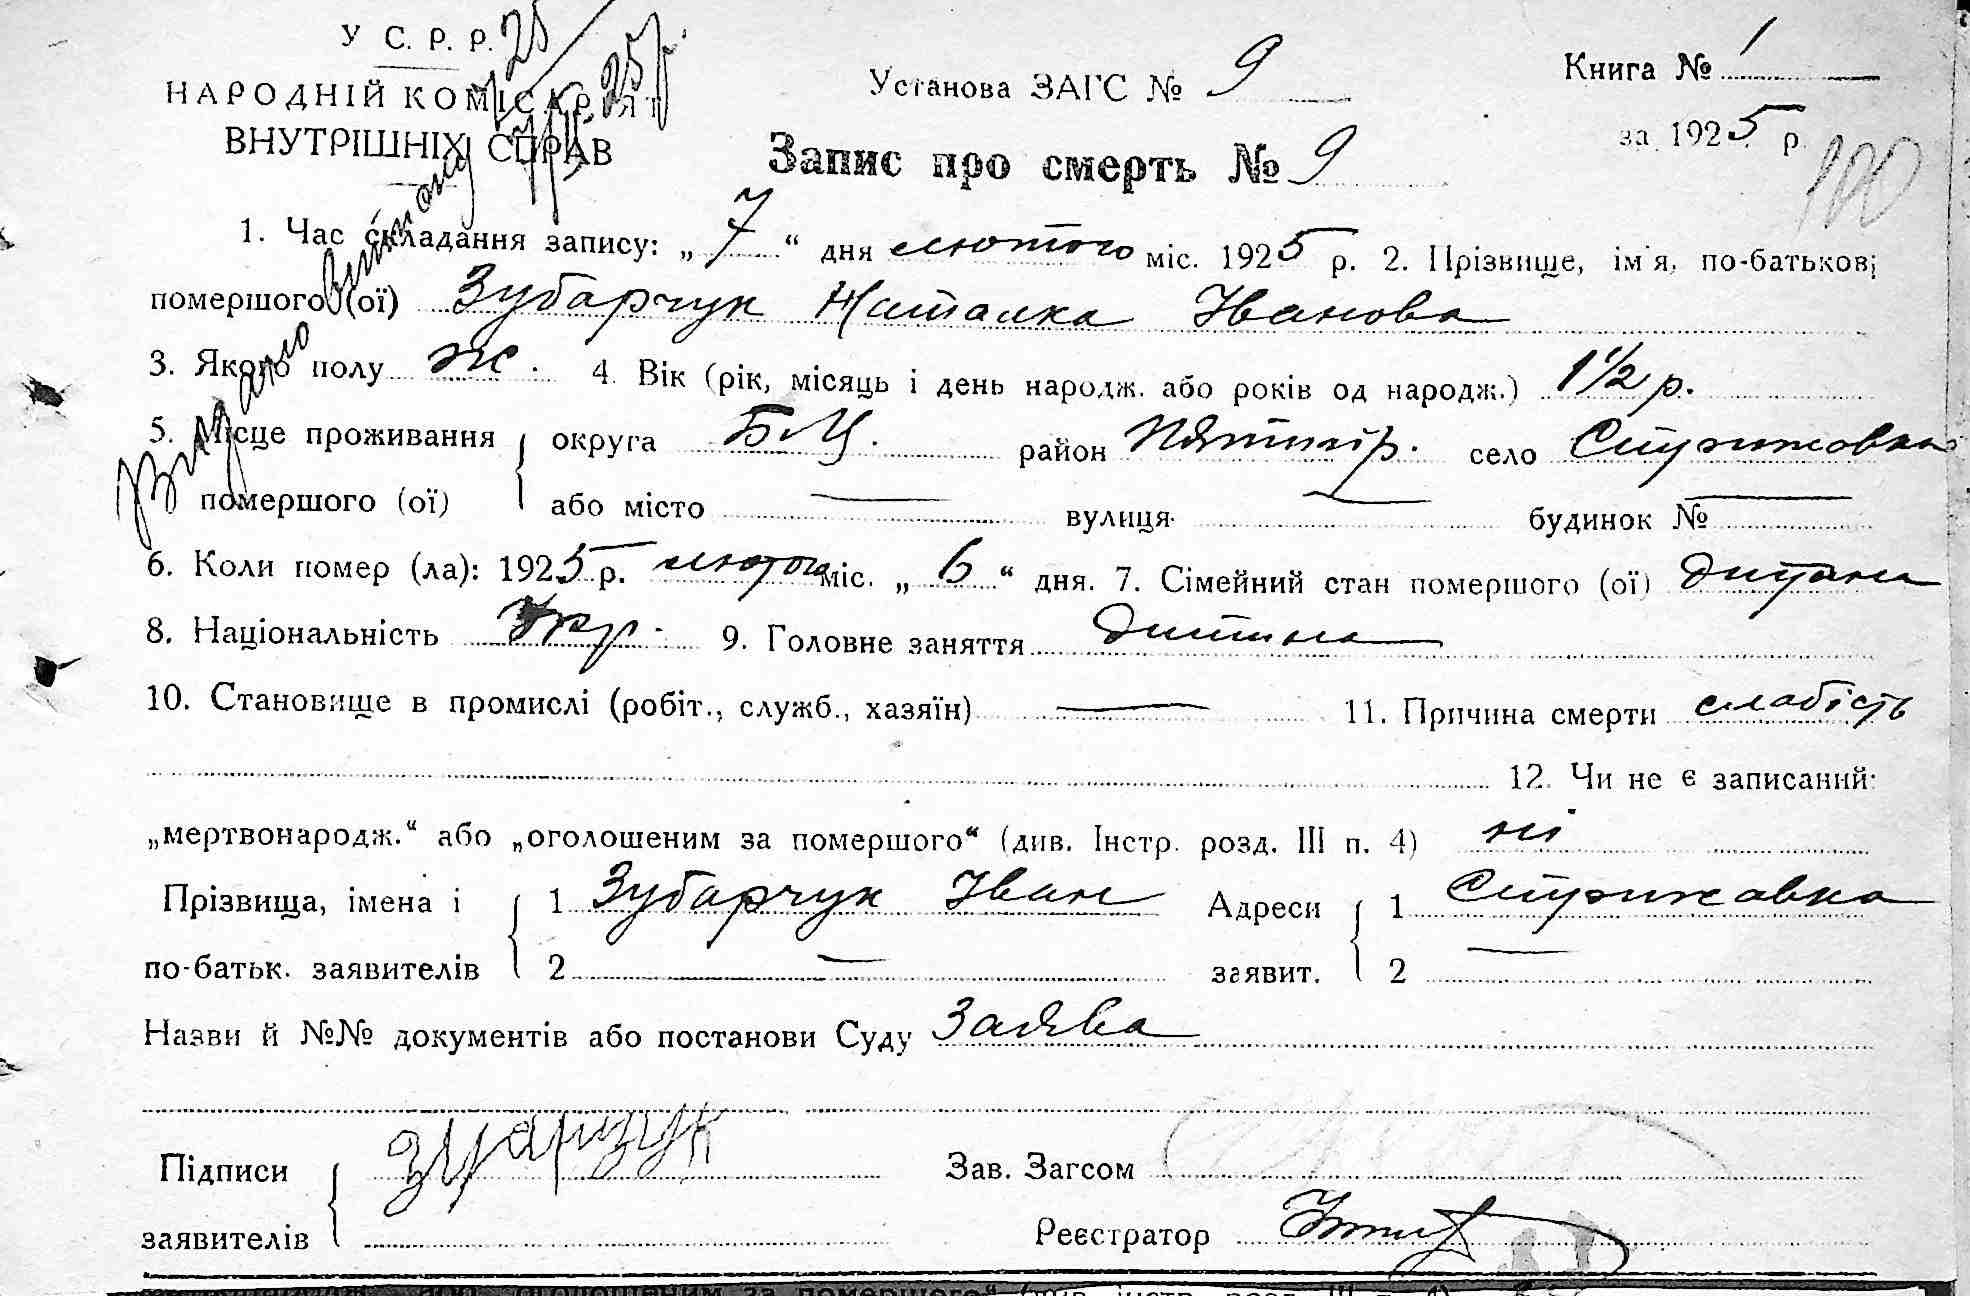 У С. Р. Р.
НАРОДНІЙ КОМІСАРІЯТ
ВНУТРІШНІХ СПРАВ
Видано виписку
25
25р.
Установа ЗАГС № 9
Книга № 1
за 1925 р.
100
Запис про смерть № 9
1. Час складання запису: „ 7 “ дня лютого міс. 1925 р. 2. Прізвище, ім'я, по-батькові
помершого (ої) Зубарчук Наталка Іванова
3. Якого полу ж. 4. Вік (рік, місяць і день народж. або років од народж.) 1 1/2 р.
5. Місце проживання помершого (ої) { округа Б-Ц. район Пятигір. село Стрижовка
або місто — вулиця — будинок № —
6. Коли помер (ла): 1925 р. лютого міс. „ 6 “ дня. 7. Сімейний стан помершого (ої) дитина
8. Національність Укр. 9. Головне заняття дитина
10. Становище в промислі (робіт., служб., хазяїн) — 11. Причина смерти слабість
12. Чи не є записаний:
„мертвонародж.“ або „оголошеним за помершого“ (див. Інстр. розд. III п. 4) ні
Прізвища, імена і { 1 Зубарчук Іван Адреси { 1 Стрижавка
по-батьк. заявителів { 2 — заявит. { 2 —
Назви й №№ документів або постанови Суду Заява
Підписи { Зубарчук Зав. Загсом
заявителів Реєстратор